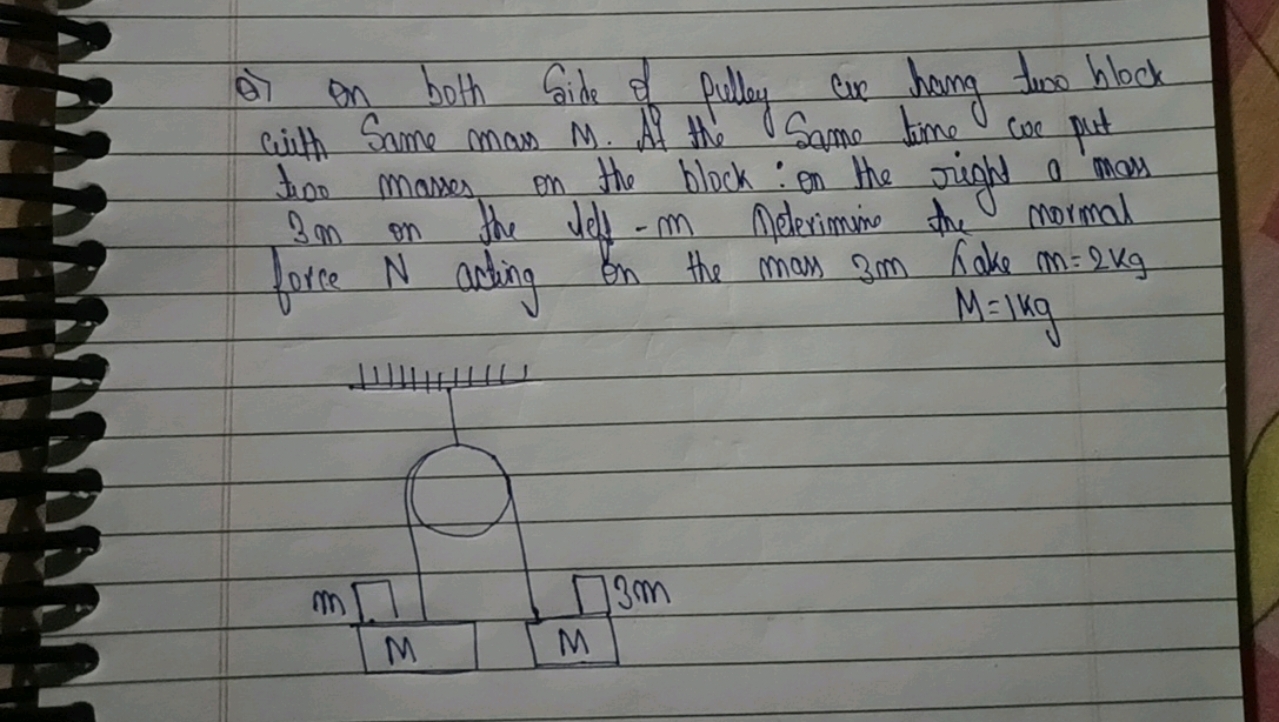 Q) On both Side of pulley we hang two block
with Same mass M. At the Same time we put
two masses on the block : on the right a mass
3m on the left - m Deterimine the normal
force N acting on the mass 3m Take m = 2kg
M = 1kg
m 3m
M M